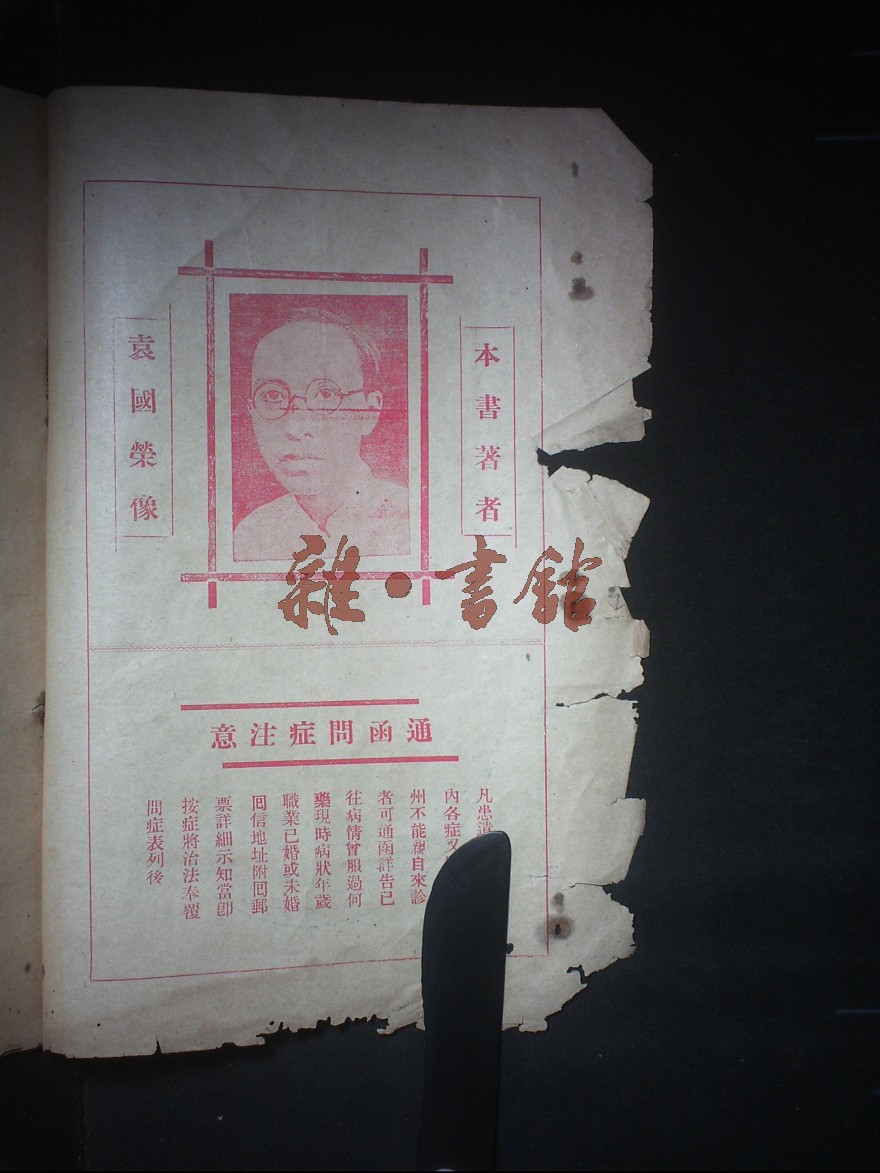 本書著者
袁國榮像
雜·書館
通函問症注意
凡患遺
內各症又
州不能親自來診
者可通函詳告已
往病情曾服過何
藥現時病狀年歲
職業已婚或未婚
回信地址附回郵
票詳細示知當卽
按症將治法奉覆
問症表列後